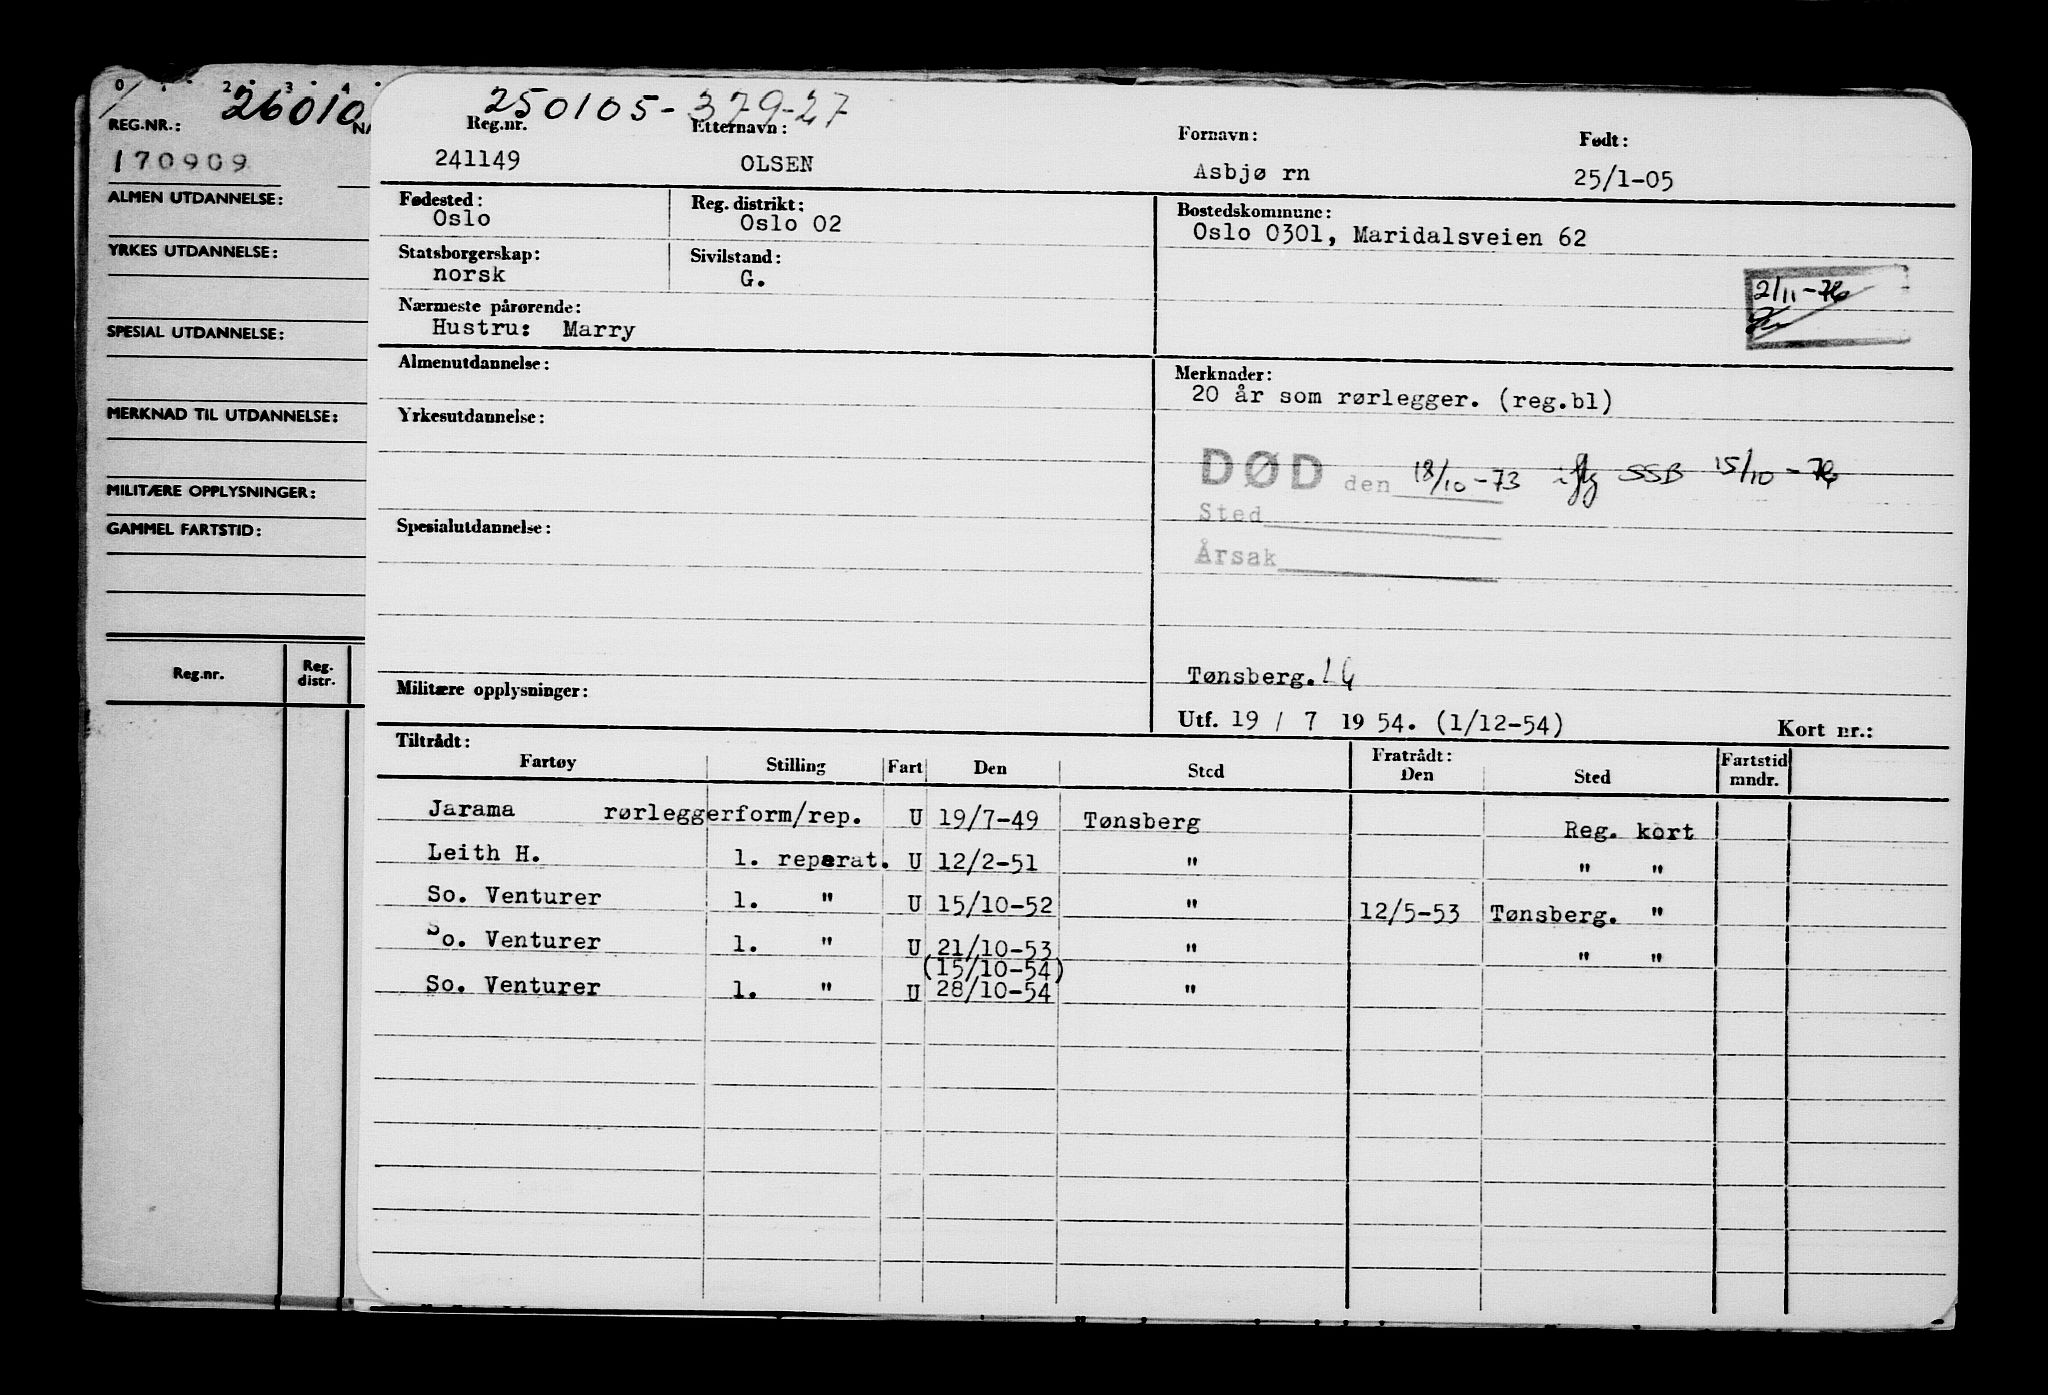 0 1 2 3 4
26010
REG.NR.:
NA
170909
ALMEN UTDANNELSE:
YRKES UTDANNELSE:
SPESIAL UTDANNELSE:
MERKNAD TIL UTDANNELSE:
MILITÆRE OPPLYSNINGER:
GAMMEL FARTSTID:
Reg.nr. Reg. distr.
250105-379-27
Reg.nr. Etternavn: Fornavn: Født:
241149 OLSEN Asbjø rn 25/1-05
Fødested: Reg. distrikt: Bostedskommune:
Oslo Oslo 02 Oslo 0301, Maridalsveien 62
Statsborgerskap: Sivilstand:
norsk G.
2/11-76
Nærmeste pårørende:
Hustru: Marry
Almenutdannelse: Merknader:
20 år som rørlegger. (reg.bl)
Yrkesutdannelse:
DØD den 18/10-73 iflg SSB 15/10-76
Sted
Spesialutdannelse:
Årsak
Tønsberg.
Militære opplysninger:
Utf. 19 / 7 19 54. (1/12-54) Kort nr.:
Tiltrådt: Fratrådt:
Fartøy Stilling Fart Den Sted Den Sted Fartstid mndr.
Jarama rørleggerform/rep. U 19/7-49 Tønsberg Reg. kort
Leith H. 1. reperat. U 12/2-51 " " "
So. Venturer 1. " U 15/10-52 " 12/5-53 Tønsberg. "
So. Venturer 1. " U 21/10-53 " " "
(15/10-54)
So. Venturer 1. " U 28/10-54 "